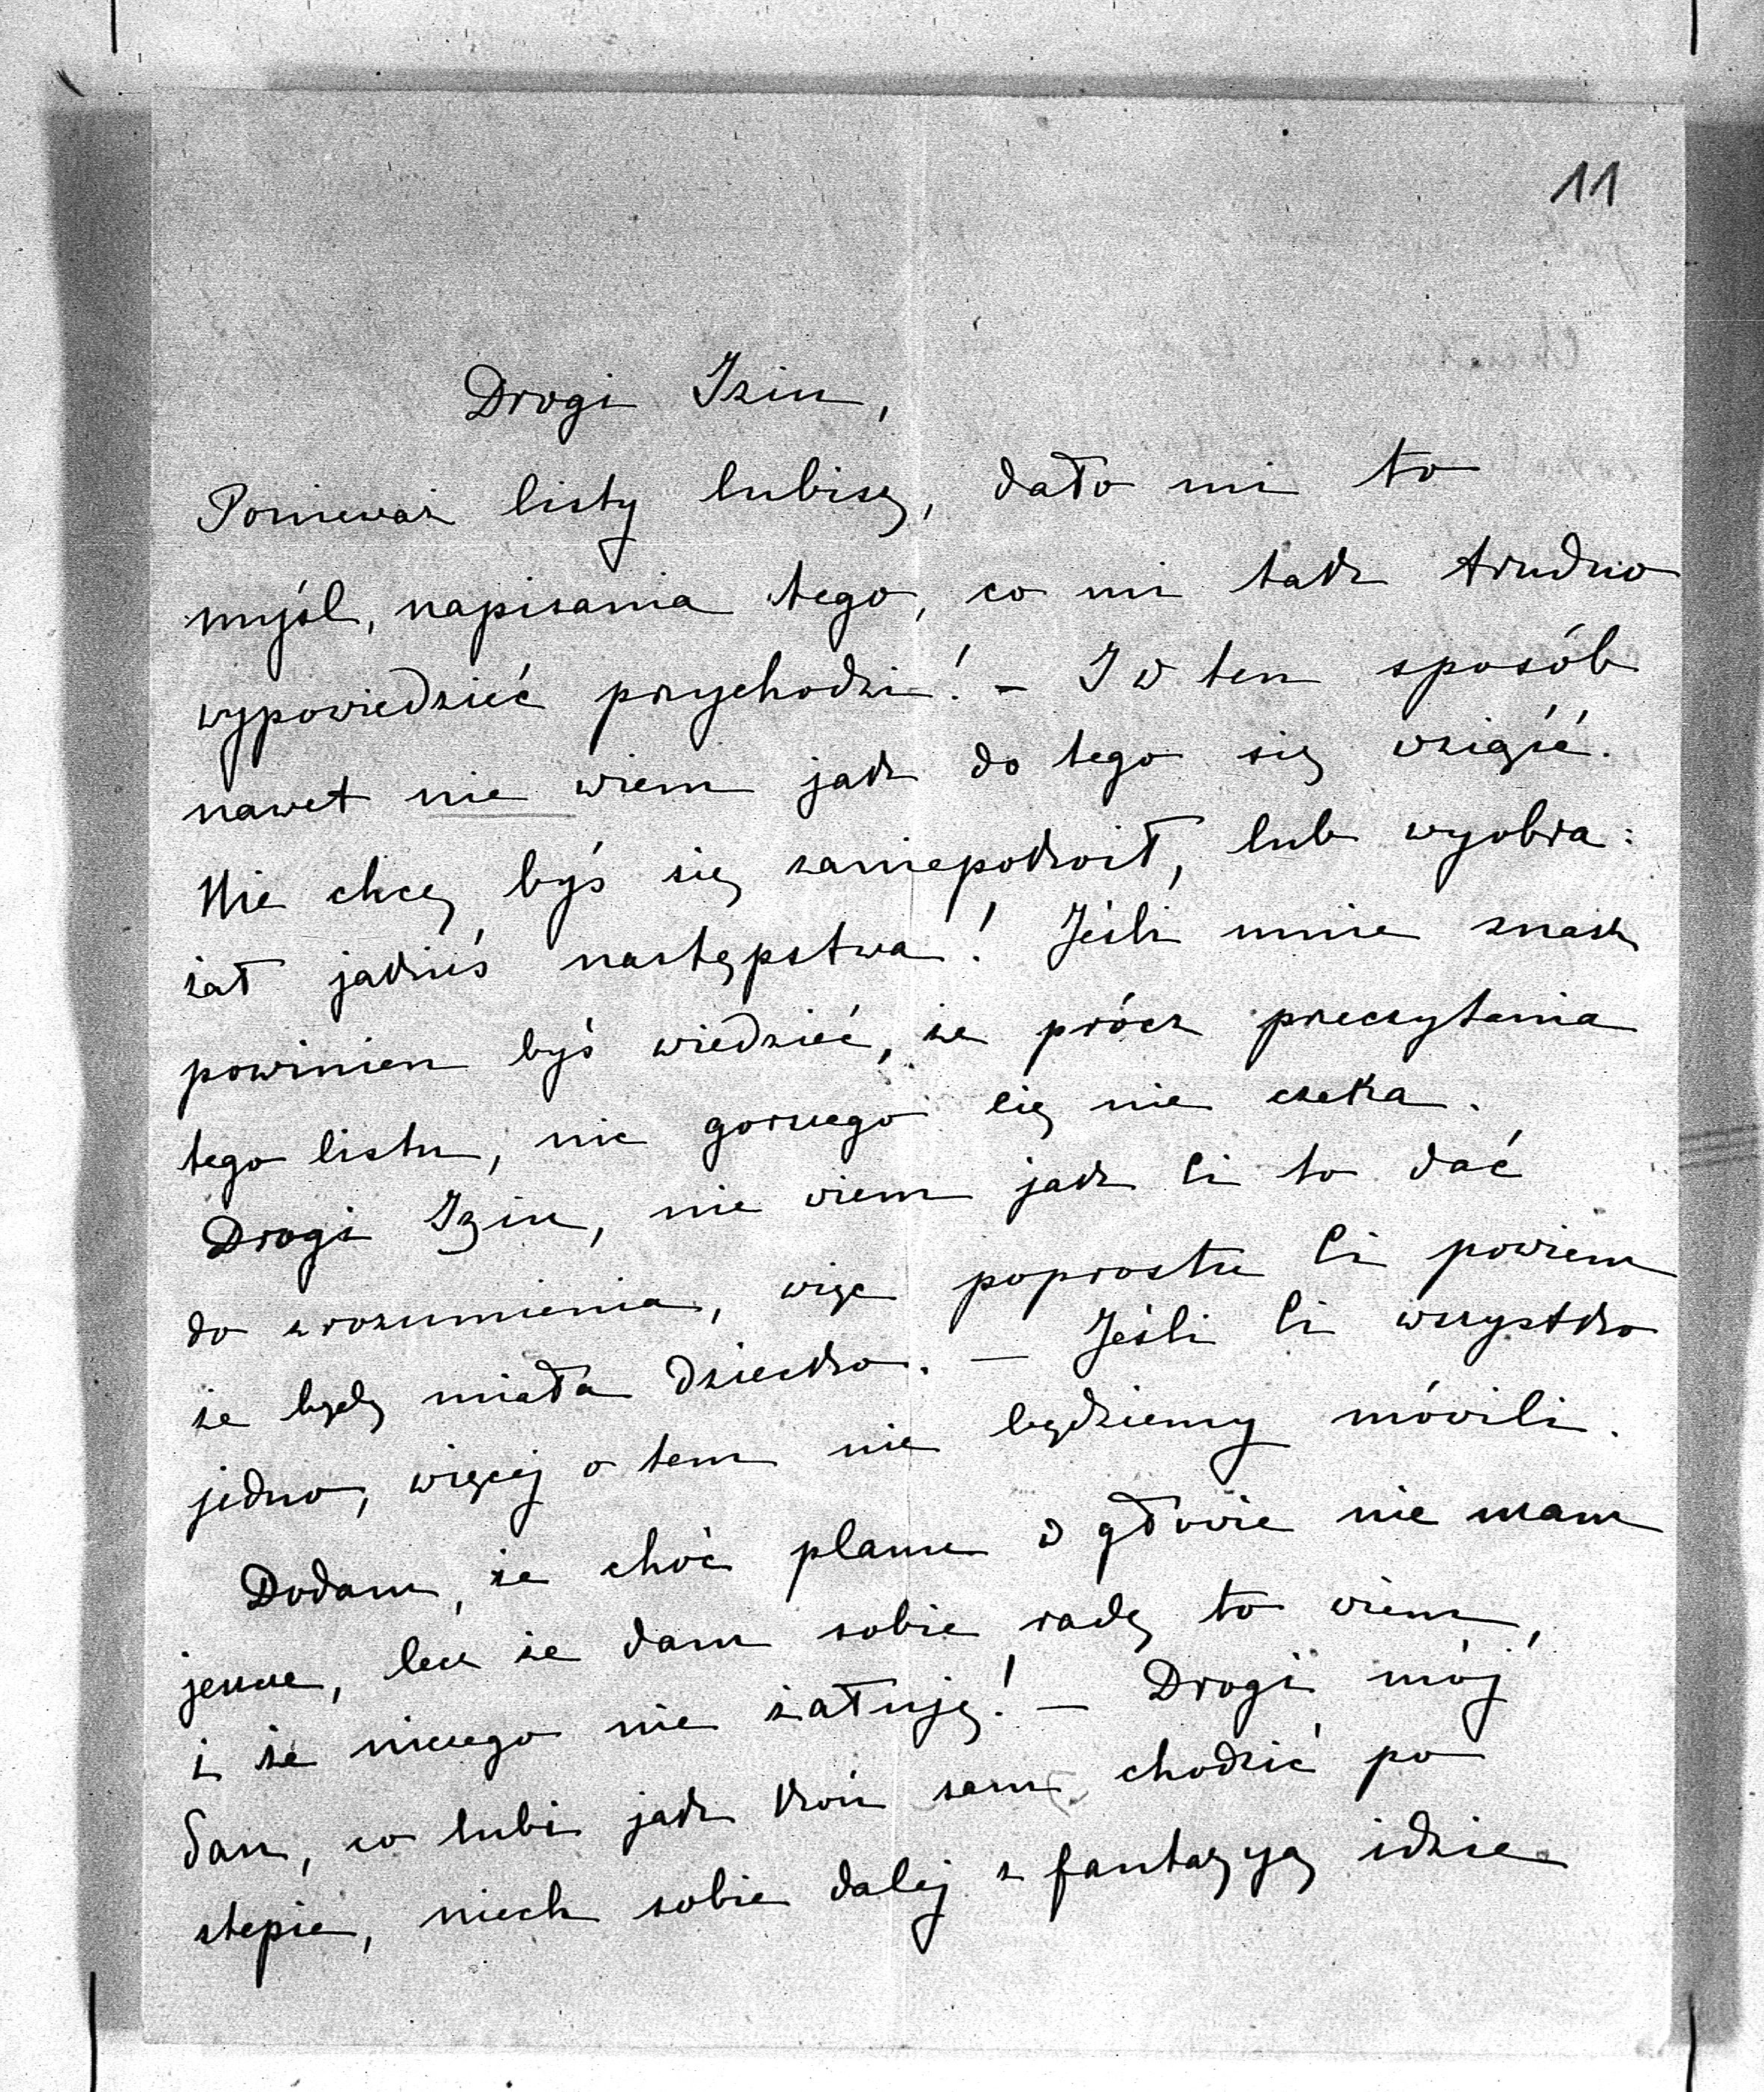 11
Drogi Iziu,
Ponieważ listy lubisz, dało mi to
myśl, napisania tego, co mi tak trudno
wypowiedzieć przychodzi! – I w ten sposób
nawet nie wiem jak do tego się wziąść.
Nie chcę byś się zaniepokoił, lub wyobra:
żał jakieś następstwa! Jeśli mnie znasz
powinien byś wiedzieć, że prócz przeczytania
tego listu, nic gorszego cię nie czeka.
Drogi Iziu, nie wiem jak Ci to dać
do zrozumienia, więc poprostu Ci powiem
że będę miała dziecko. – Jeśli Ci wszystko
jedno, więcej o tem nie będziemy mówili.
Dodam, że choć planu w głowie nie mam
jeszcze, lecz że dam sobie radę to wiem,
i że niczego nie żałuję! – Drogi mój
Pan, co lubi jak koń sam chodzić po
stepie, niech sobie dalej z fantazyą idzie